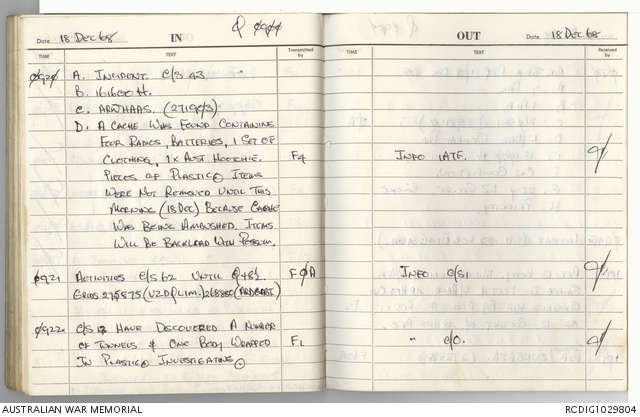 Date 18 DEC 68 IN
TIME TEXT Transmitted by
Ø92Ø A. INCIDENT. C/S 43.
B. 161600 H.
C.
D. A CACHE WAS FOUND CONTAINING
FOUR RADIOS, BATTERIES, 1 SET OF
CLOTHING, 1X AUST HOOTCHIE.
PIECES OF PLASTIC ITEMS
WERE NOT REMOVED UNTIL THIS
MORNING (18 DEC) BECAUSE CACHE
WAS BEING AMBUSHED. ITEMS
WILL BE BACKLOAD WITH
F4
Ø921 ACTIVITIES C/S 62 UNTIL
GRIDS
FØA
Ø922 C/S HAVE DISCOVERED A NUMBER
OF TUNNELS & ONE BODY WRAPPED
IN PLASTIC INVESTIGATING
F1
OUT Date 18 DEC 68
TIME TEXT Received by
INFO 1ATF.
INFO C/S1
" C/O.
AUSTRALIAN WAR MEMORIAL RCDIG1029804